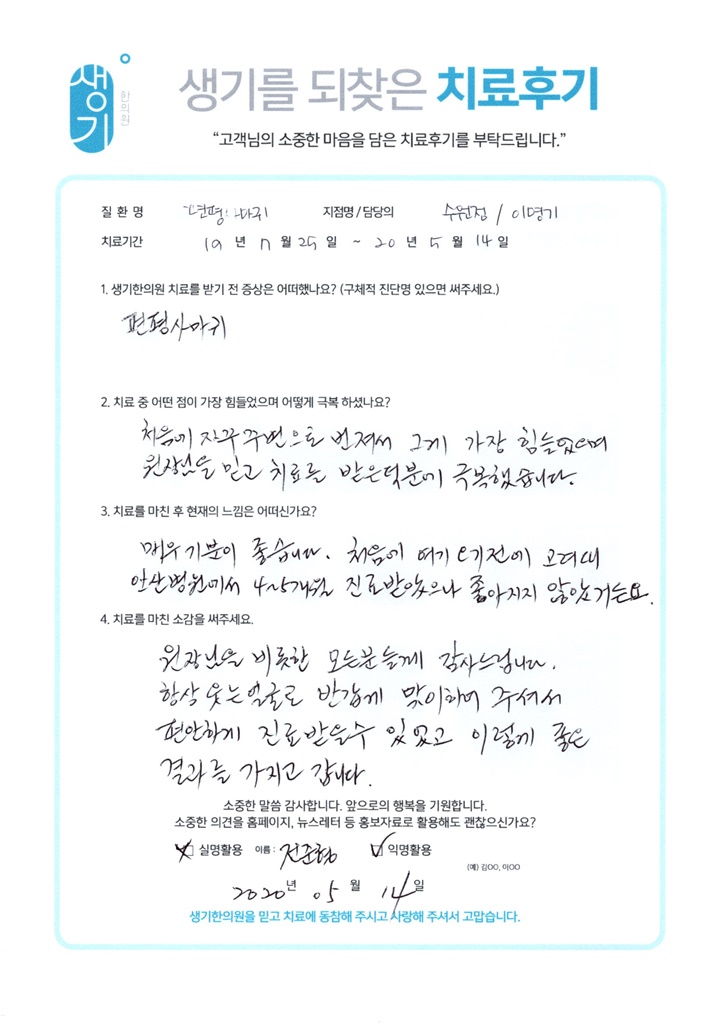 생기
한의원
생기를 되찾은 치료후기
“고객님의 소중한 마음을 담은 치료후기를 부탁드립니다.”
질 환 명 편평사마귀 지점명 / 담당의 수원점 / 이명기
치료기간 19 년 7 월 25 일 ~ 20 년 5 월 14 일
1. 생기한의원 치료를 받기 전 증상은 어떠했나요? (구체적 진단명 있으면 써주세요.)
편평사마귀
2. 치료 중 어떤 점이 가장 힘들었으며 어떻게 극복 하셨나요?
처음에 자꾸 주변으로 번져서 그게 가장 힘들었으며
원장님을 믿고 치료를 받은덕분에 극복했습니다.
3. 치료를 마친 후 현재의 느낌은 어떠신가요?
매우 기분이 좋습니다. 처음에 여기 오기전에 고려대
안산병원에서 4~5개월 진료받았으나 좋아지지 않았거든요.
4. 치료를 마친 소감을 써주세요.
원장님을 비롯한 모든분들께 감사드립니다.
항상 웃는얼굴로 반갑게 맞이하여 주셔서
편안하게 진료받을수 있었고 이렇게 좋은
결과를 가지고 갑니다.
소중한 말씀 감사합니다. 앞으로의 행복을 기원합니다.
소중한 의견을 홈페이지, 뉴스레터 등 홍보자료로 활용해도 괜찮으신가요?
실명활용 이름 : 전준형 익명활용
(예) 김OO, 이OO
2020 년 05 월 14 일
생기한의원을 믿고 치료에 동참해 주시고 사랑해 주셔서 고맙습니다.